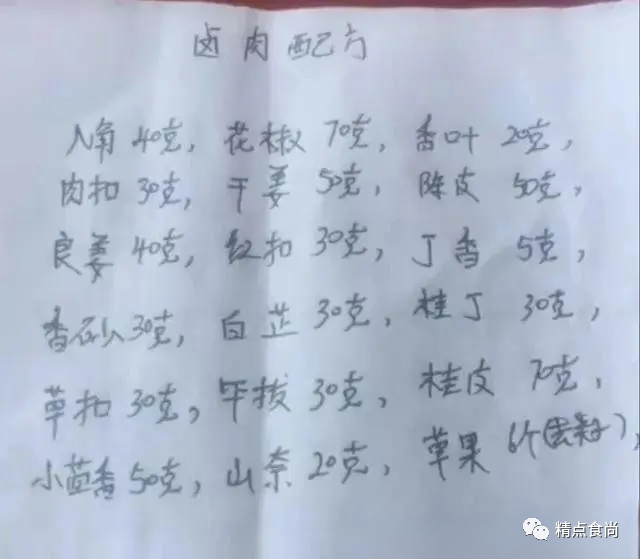 卤肉配方
八角40克，花椒70克，香叶20克，
肉扣30克，干姜50克，陈皮50克，
良姜40克，红扣30克，丁香5克，
香砂30克，白芷30克，桂丁30克，
草扣30克，毕拔30克，桂皮70克，
小茴香50克，山奈20克，草果6个(去籽)，
精点食尚